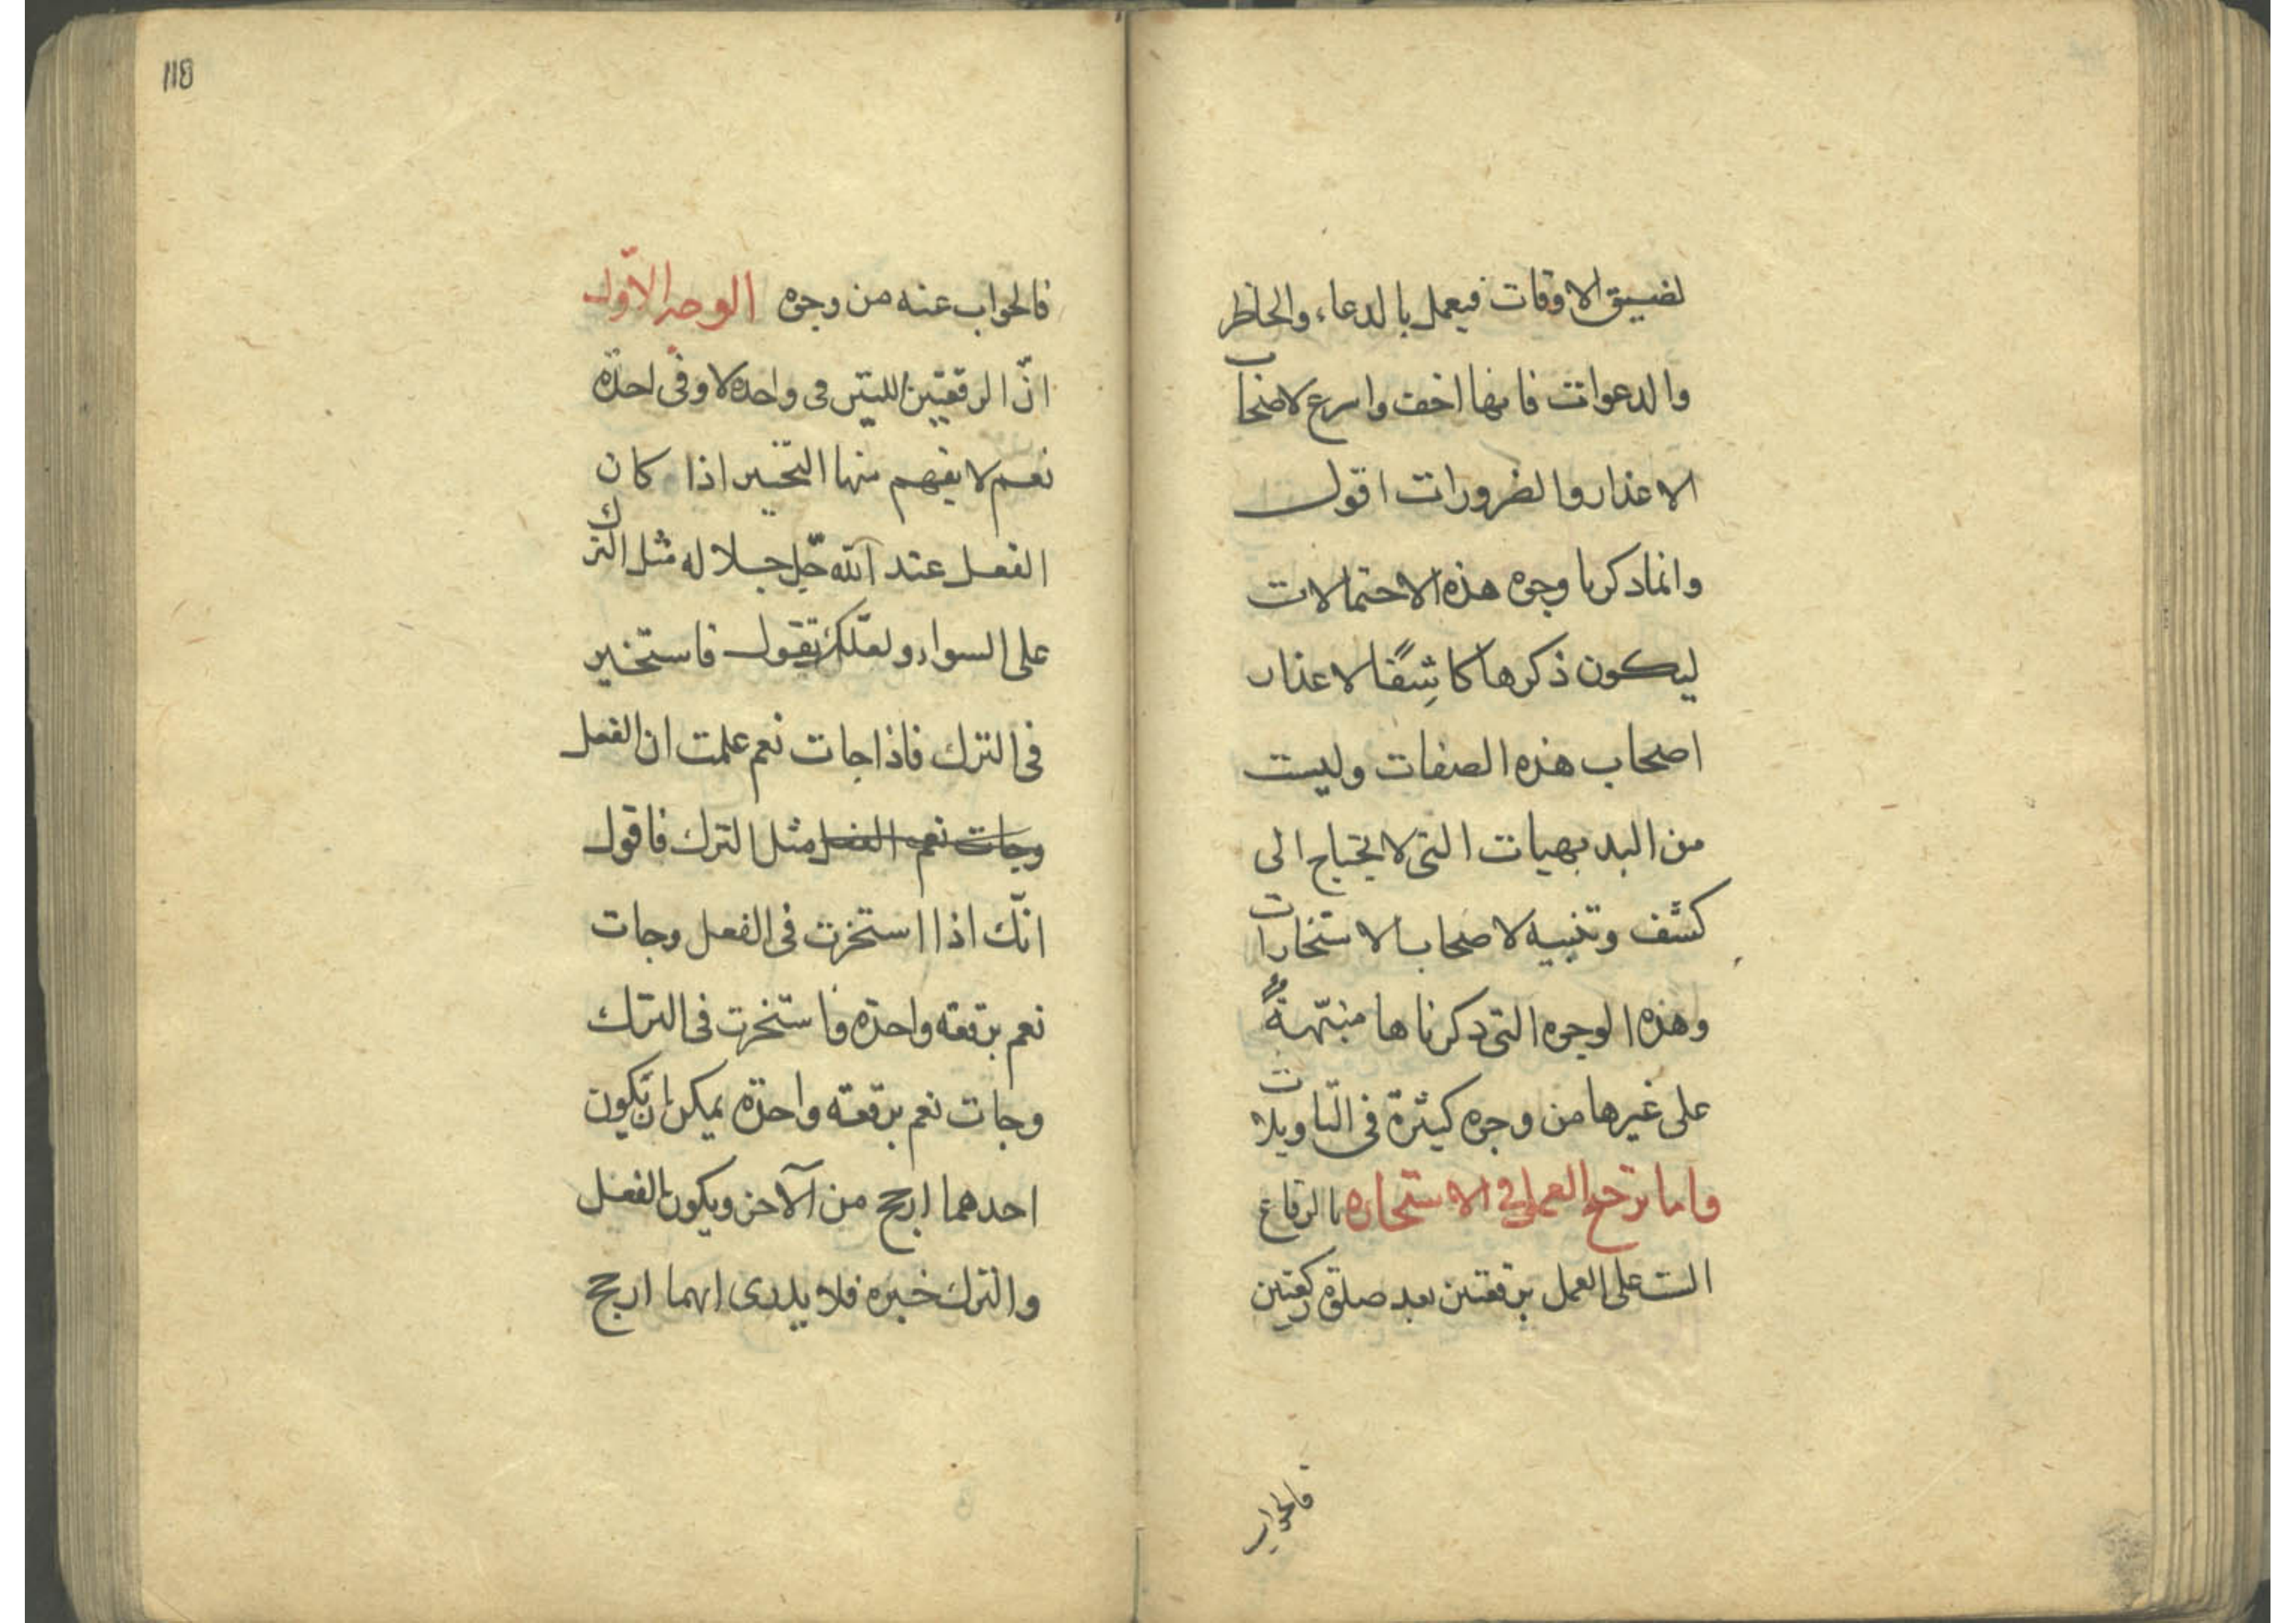 لضيق الاوقات فيعمل بالدعاء والخاطر
والدعوات فانها اخف واسرع لاصحاب
الاعذار والضرورات اقول
وانما ذكرنا وجوه هذه الاحتمالات
ليكون ذكرها كاشِفًا لاعذار
اصحاب هذه الصفات وليست
من البديهيات التي لا يحتاج الى
كشف وتنبيه لاصحاب الاستخارات
وهذه الوجوه التي ذكرناها منبّهةً
على غيرها من وجوه كثيرة في التّاويلات
واما ترجيح العمل في الاستخاره بالرقاع
الست على العمل برقعتين بعد صلوة ركعتين
فالجواب
118
فالجواب عنه من وجوه الوجه الاوّل
انّ الرقعتين اللتين في واحدة لا وفي احدة
نعم لا يفهم منها التخيير اذا كان
الفعل عند الله جلّ جلاله مثل الترك
على السواء ولعلّك تقول فاستخير
في الترك فاذا جات نعم علمت ان الفعل
وجات نعم الفعل مثل الترك فاقول
انّك اذا استخرت في الفعل وجات
نعم برقعه واحدة فاستخرت في الترك
وجات نعم برقعة واحدة يمكن ان يكون
احدهما ارجح من الآخر ويكون الفعل
والترك خيره فلا يدرى ايهما ارجح